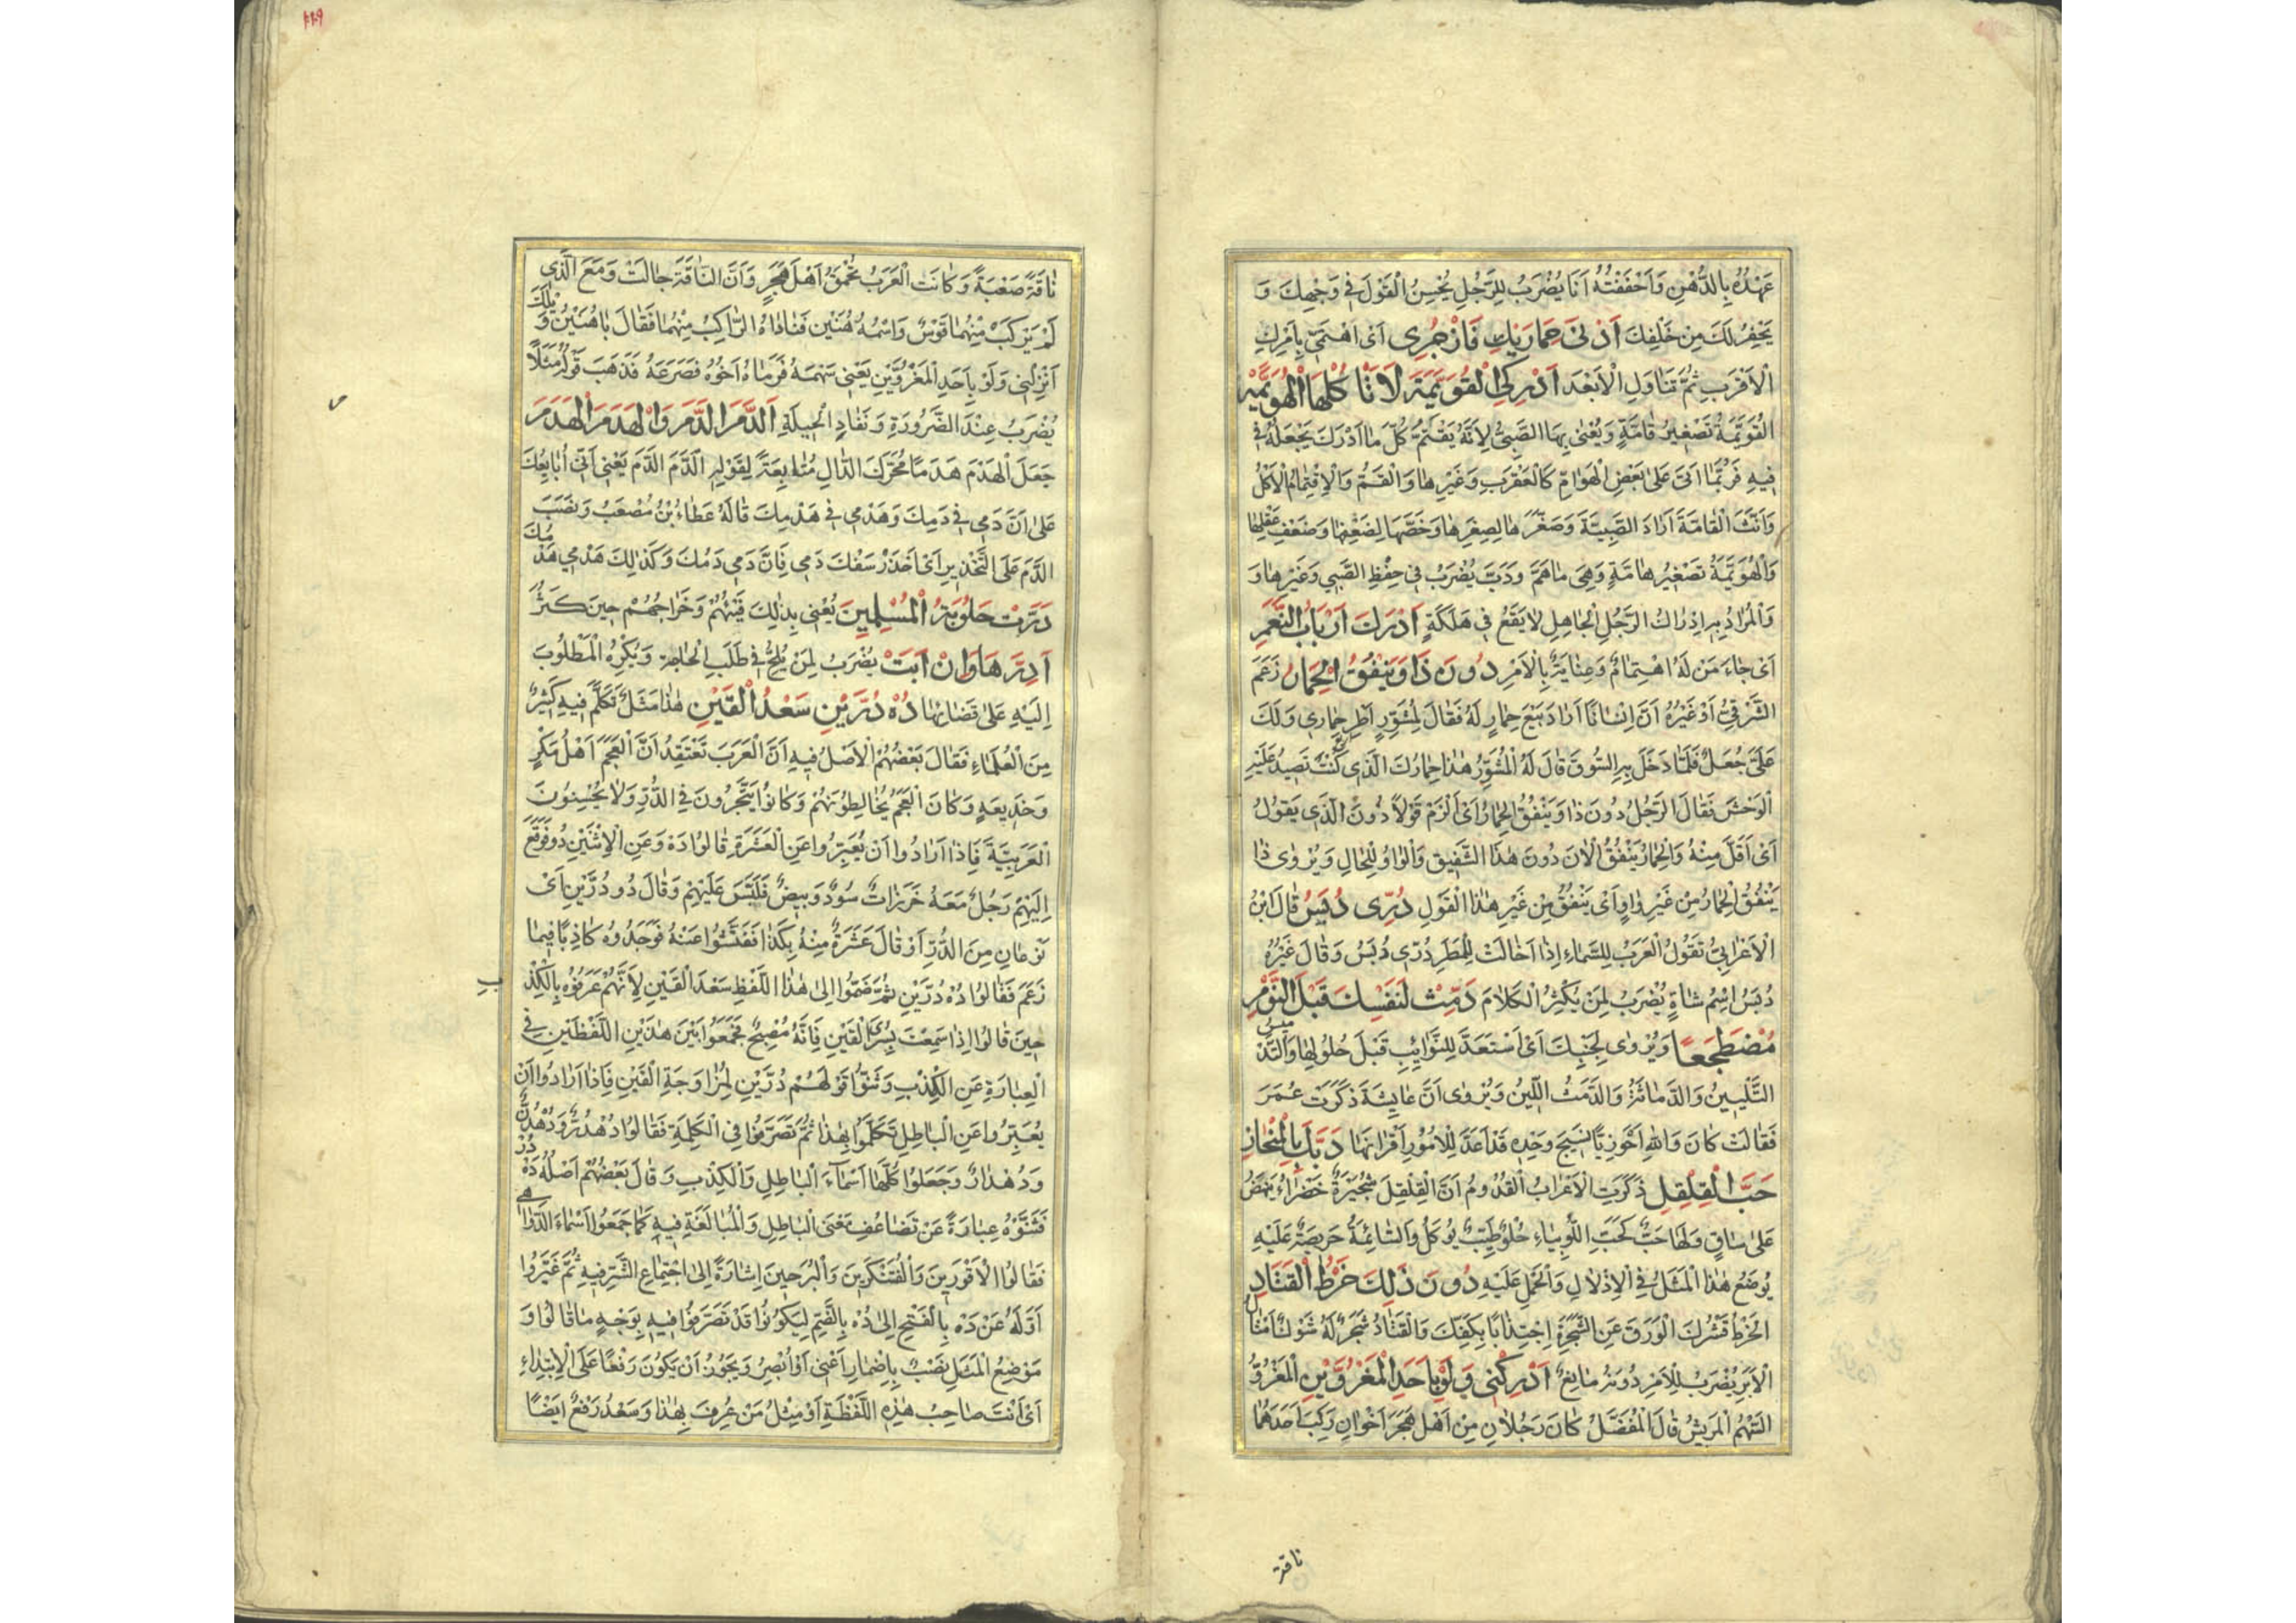 عَهْدُهُ بِالدُّهْنِ وَاَحْفَفْتُهُ اَنَا يُضْرَبُ لِلرَّجُلِ يُحْسِنُ الْقَوْلَ فِي وَجْهِكَ وَ
يَحْفِرُ لَكَ مِنْ خَلْفِكَ اَدْنَى حِمَارَيْكِ فَازْجُرِى اَىْ اهْتَمِّى بِاَمْرِكِ
الْاَقْرَبِ ثُمَّ تَنَاوَلِ الْاَبْعَدَ اَدْرِكِى الْقُوَيِّمَةَ لَا تَأْكُلْهَا الْهُوَيِّمَةُ
الْقُوَيِّمَةُ تَصْغِيرُ قَامَّةٍ وَيُعْنٰى بِهَا الصَّبِىُّ لِاَنَّهُ يَقْتَمُّ كُلَّ مَا اَدْرَكَ يَجْعَلُهُ فِي
فِيهِ فَرُبَّمَا اَتٰى عَلٰى بَعْضِ الْهَوَامِّ كَالْعَقْرَبِ وَغَيْرِهَا وَالْقَمُّ وَالْاِقْتِمَامُ الْاَكْلُ
وَاَنَّثَ الْقَامَّةَ اَرَادَ الصَّبِيَّةَ وَصَغَّرَهَا لِصِغَرِهَا وَخَصَّهَا لِضَعْفِهَا وَضَعْفِ عَقْلِهَا
وَالْهُوَيِّمَةُ تَصْغِيرُ هَامَّةٍ وَهِىَ مَا هَمَّ وَدَبَّ يُضْرَبُ فِي حِفْظِ الصَّبِيِ وَغَيْرِهَا وَ
وَالْمُرَادُ بِهِ اِدْرَاكُ الرَّجُلِ الْجَاهِلِ لَا يَقَعُ فِي هَلَكَةٍ اَدْرَكَ اَرْبَابُ النَّعَمِ
اَىْ جَاءَ مَنْ لَهُ اهْتِمَامٌ وَعِنَايَةٌ بِالْاَمْرِ دُونَ ذَا وَيَنْفُقُ الْحِمَارُ زَعَمَ
الشَّرْقِيُّ اَوْ غَيْرُهُ اَنَّ اِنْسَانًا اَرَادَ بَيْعَ حِمَارٍ لَهُ فَقَالَ لِمُشَوِّرٍ اَطْرِ حِمَارِى وَلَكَ
عَلَىَّ جُعْلٌ فَلَمَّا دَخَلَ بِهِ السُّوقَ قَالَ لَهُ الْمُشَوِّرُ هٰذَا حِمَارُكَ الَّذِى كُنْتَ تَصِيدُ عَلَيْهِ
الْوَحْشَ فَقَالَ الرَّجُلُ دُونَ ذَا وَيَنْفُقُ الْحِمَارُ اَىْ اَلْزَمْ قَوْلًا دُونَ الَّذِى يَقُولُ
اَىْ اَقَلَّ مِنْهُ وَالْحِمَارُ يَنْفُقُ الْاٰنَ دُونَ هٰذَا التَّنْفِيقِ وَالْوَاوُ لِلْحَالِ وَيُرْوٰى ذَا
يَنْفُقُ الْحِمَارُ مِنْ غَيْرِ وَاوٍ اَىْ يَنْفُقُ مِنْ غَيْرِ هٰذَا الْقَوْلِ دُرِّى دُبَسُ قَالَ ابْنُ
الْاَعْرَابِيِّ تَقُولُ الْعَرَبُ لِلسَّمَاءِ اِذَا اَخَالَتْ لِلْمَطَرِ دُرِّى دُبَسُ وَقَالَ غَيْرُهُ
دُبَسُ اِسْمُ شَاةٍ يُضْرَبُ لِمَنْ يُكْثِرُ الْكَلَامَ دَمِّثْ لِنَفْسِكَ قَبْلَ النَّوْمِ
مُضْطَجَعًا وَيُرْوٰى لِجَنْبِكَ اَىْ اَسْتَعِدَّ لِلنَّوَائِبِ قَبْلَ حُلُولِهَا وَالتَّدْمِيثُ
التَّلْيِينُ وَالدَّمَاثَةُ وَالدَّمَثُ اللِّينُ وَيُرْوٰى اَنَّ عَائِشَةَ ذَكَرَتْ عُمَرَ
فَقَالَتْ كَانَ وَاللّٰهِ اَحْوَزِيًّا نَسِيجَ وَحْدِهِ قَدْ اَعَدَّ لِلْاُمُورِ اَقْرَانَهَا دَقَّكَ بِالْمِنْحَازِ
حَبَّ الْقِلْقِلِ ذَكَرَتِ الْاَعْرَابُ الْقُدُومُ اَنَّ الْقِلْقِلَ شُجَيْرَةٌ خَضْرَاءُ يَنْهَضُ
عَلٰى سَاقٍ وَلَهَا حَبٌّ كَحَبِّ اللُّوبِيَاءِ حُلْوٌ طَيِّبٌ يُؤْكَلُ وَالسَّائِمَةُ حَرِيصَةٌ عَلَيْهِ
يُوضَعُ هٰذَا الْمَثَلُ فِي الْاِذْلَالِ وَالْحَمْلِ عَلَيْهِ دُونَ ذٰلِكَ خَرْطُ الْقَتَادِ
الْخَرْطُ قَشْرُكَ الْوَرَقَ عَنِ الشَّجَرَةِ اِجْتِذَابًا بِكَفِّكَ وَالْقَتَادُ شَجَرٌ لَهُ شَوْكٌ اَمْثَالُ
الْاِبَرِ يُضْرَبُ لِلْاَمْرِ دُونَهُ مَانِعٌ اَدْرِكْنِى وَلَوْ بِاَحَدِ الْمَغْرُوَّيْنِ الْمَغْرُوُّ
السَّهْمُ الْمَرِيشُ قَالَ الْمُفَضَّلُ كَانَ رَجُلَانِ مِنْ اَهْلِ هَجَرَ اَخَوَانِ رَكِبَ اَحَدُهُمَا
ناقة
نَاقَةً صَعْبَةً وَكَانَتِ الْعَرَبُ تُحَمِّقُ اَهْلَ هَجَرٍ وَاَنَّ النَّاقَةَ جَالَتْ وَمَعَ الَّذِى
لَمْ يَرْكَبْ مِنْهُمَا قَوْسٌ وَاسْمُهُ هُنَيْنٌ فَنَادَاهُ الرَّاكِبُ مِنْهُمَا فَقَالَ يَا هُنَيْنُ وَيْلَكَ
اَنْزِلْنِى وَلَوْ بِاَحَدِ الْمَغْرُوَّيْنِ يَعْنِى سَهْمَهُ فَرَمَاهُ اَخُوهُ فَصَرَعَهُ فَذَهَبَ قَوْلُهُ مَثَلًا
يُضْرَبُ عِنْدَ الضَّرُورَةِ وَنَفَادِ الْحِيلَةِ اَلدَّمَ الدَّمَ وَالْهَدَمَ الْهَدَمَ
جَعَلَ الْهَدْمَ هَدَمًا مُحَرَّكَ الدَّالِ مُتَابِعَةً لِقَوْلِهِ الدَّمَ الدَّمَ يَعْنِى اَنِّى اُبَايِعُكَ
عَلٰى اَنَّ دَمِى فِي دَمِكَ وَهَدْمِى فِي هَدْمِكَ قَالَهُ عَطَاءُ بْنُ مُصْعَبٍ وَنَصَبَ
الدَّمَ عَلَى التَّحْذِيرِ اَىْ اَحْذَرُ سَفْكَ دَمِى فَاِنَّ دَمِى دَمُكَ وَكَذٰلِكَ هَدْمِى هَدْمُكَ
دَرَّتْ حَلُوبَةُ الْمُسْلِمِينَ يُعْنٰى بِذٰلِكَ فَيْئُهُمْ وَخَرَاجُهُمْ حِينَ كَثُرَ
اَدِرَّهَا وَاِنْ اَبَتْ يُضْرَبُ لِمَنْ يُلِحُّ فِي طَلَبِ الْحَاجَةِ وَيُكْرِهُ الْمَطْلُوبَ
اِلَيْهِ عَلٰى قَضَائِهَا دُهْ دُرَّيْنِ سَعْدُ الْقَيْنِ هٰذَا مَثَلٌ تَكَلَّمَ فِيهِ كَثِيرٌ
مِنَ الْعُلَمَاءِ فَقَالَ بَعْضُهُمْ الْاَصْلُ فِيهِ اَنَّ الْعَرَبَ تَعْتَقِدُ اَنَّ الْعَجَمَ اَهْلُ مَكْرٍ
وَخَدِيعَةٍ وَكَانَ الْعَجَمُ يُخَالِطُونَهُمْ وَكَانُوا يَتَّجِرُونَ فِي الدُّرِّ وَلَا يُحْسِنُونَ
الْعَرَبِيَّةَ فَاِذَا اَرَادُوا اَنْ يُعَبِّرُوا عَنِ الْعَشَرَةِ قَالُوا دَهْ وَعَنِ الْاِثْنَيْنِ دُو فَوَقَعَ
اِلَيْهِمْ رَجُلٌ مَعَهُ خَرَزَاتٌ سُودٌ وَبِيضٌ فَلَبَّسَ عَلَيْهِمْ وَقَالَ دُو دُرَّيْنِ اَىْ
نَوْعَانِ مِنَ الدُّرِّ اَوْ قَالَ عَشَرَةٌ مِنْهُ بِكَذَا فَفَتَّشُوا عَنْهُ فَوَجَدُوهُ كَاذِبًا فِيمَا
زَعَمَ فَقَالُوا دُهْ دُرَّيْنِ ثُمَّ ضَمُّوا اِلٰى هٰذَا اللَّفْظِ سَعْدَ الْقَيْنِ لِاَنَّهُمْ عَرَفُوهُ بِالْكَذِبِ
حِينَ قَالُوا اِذَا سَمِعْتَ بِسُرَى الْقَيْنِ فَاِنَّهُ مُصْبِحٌ فَجَمَعُوا بَيْنَ هٰذَيْنِ اللَّفْظَيْنِ فِي
الْعِبَارَةِ عَنِ الْكِذْبِ وَثَنَّوْا قَوْلَهُمْ دُرَّيْنِ لِمُزَاوَجَةِ الْقَيْنِ فَاِذَا اَرَادُوا اَنْ
يُعَبِّرُوا عَنِ الْبَاطِلِ تَكَلَّمُوا بِهٰذَا ثُمَّ تَصَرَّفُوا فِي الْكَلِمَةِ فَقَالُوا دُهْدُرٌّ وَدُهْدُنٌّ
وَدُهْدَارٌ وَجَعَلُوا كُلَّهَا اَسْمَاءَ الْبَاطِلِ وَالْكِذْبِ وَقَالَ بَعْضُهُمْ اَصْلُهُ دَهْ دُرّ
فَثَنَّوْهُ عِبَارَةً عَنْ تَضَاعُفِ مَعْنَى الْبَاطِلِ وَالْمُبَالَغَةِ فِيهِ كَمَا جَمَعُوا اَسْمَاءَ الدَّوَاهِى
فَقَالُوا الْاَقْوَرِينَ وَالْفُتَكْرِينَ وَالْبُرَحِينَ اِشَارَةً اِلٰى اجْتِمَاعِ الشَّرِّ فِيهِ ثُمَّ غَيَّرُوا
اَوَّلَهُ عَنْ دَهْ بِالْفَتْحِ اِلٰى دُهْ بِالضَّمِّ لِيَكُونُوا قَدْ تَصَرَّفُوا فِيهِ بِوَجْهٍ مَا قَالُوا وَ
مَوْضِعُ الْمَثَلِ نَصْبٌ بِاِضْمَارِ اَعْنِى اَوْ اُبْصِرُ وَيَجُوزُ اَنْ يَكُونَ رَفْعًا عَلَى الْاِبْتِدَاءِ
اَىْ اَنْتَ صَاحِبُ هٰذِهِ اللَّفْظَةِ اَوْ مِثْلُ مَنْ عُرِفَ بِهٰذَا وَسَعْدُ رَفْعٌ اَيْضًا